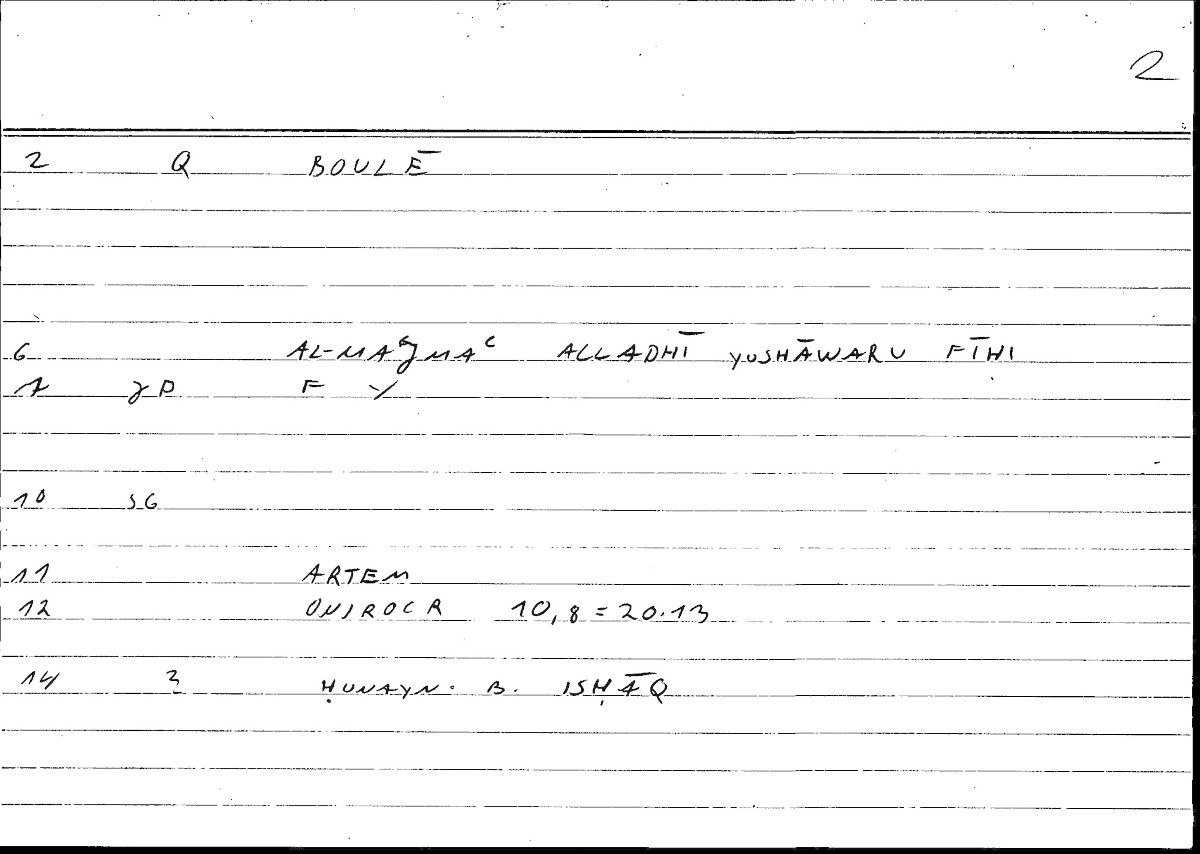 2
2 Q BOULĒ
6 AL-MAǦMAʿ ALLADHĪ YUSHĀWARU FĪHI
F
10 SG
11 ARTEM
12 ONIROCR 10,8 = 20.13
14 HUNAYN. B. ISḤĀQ